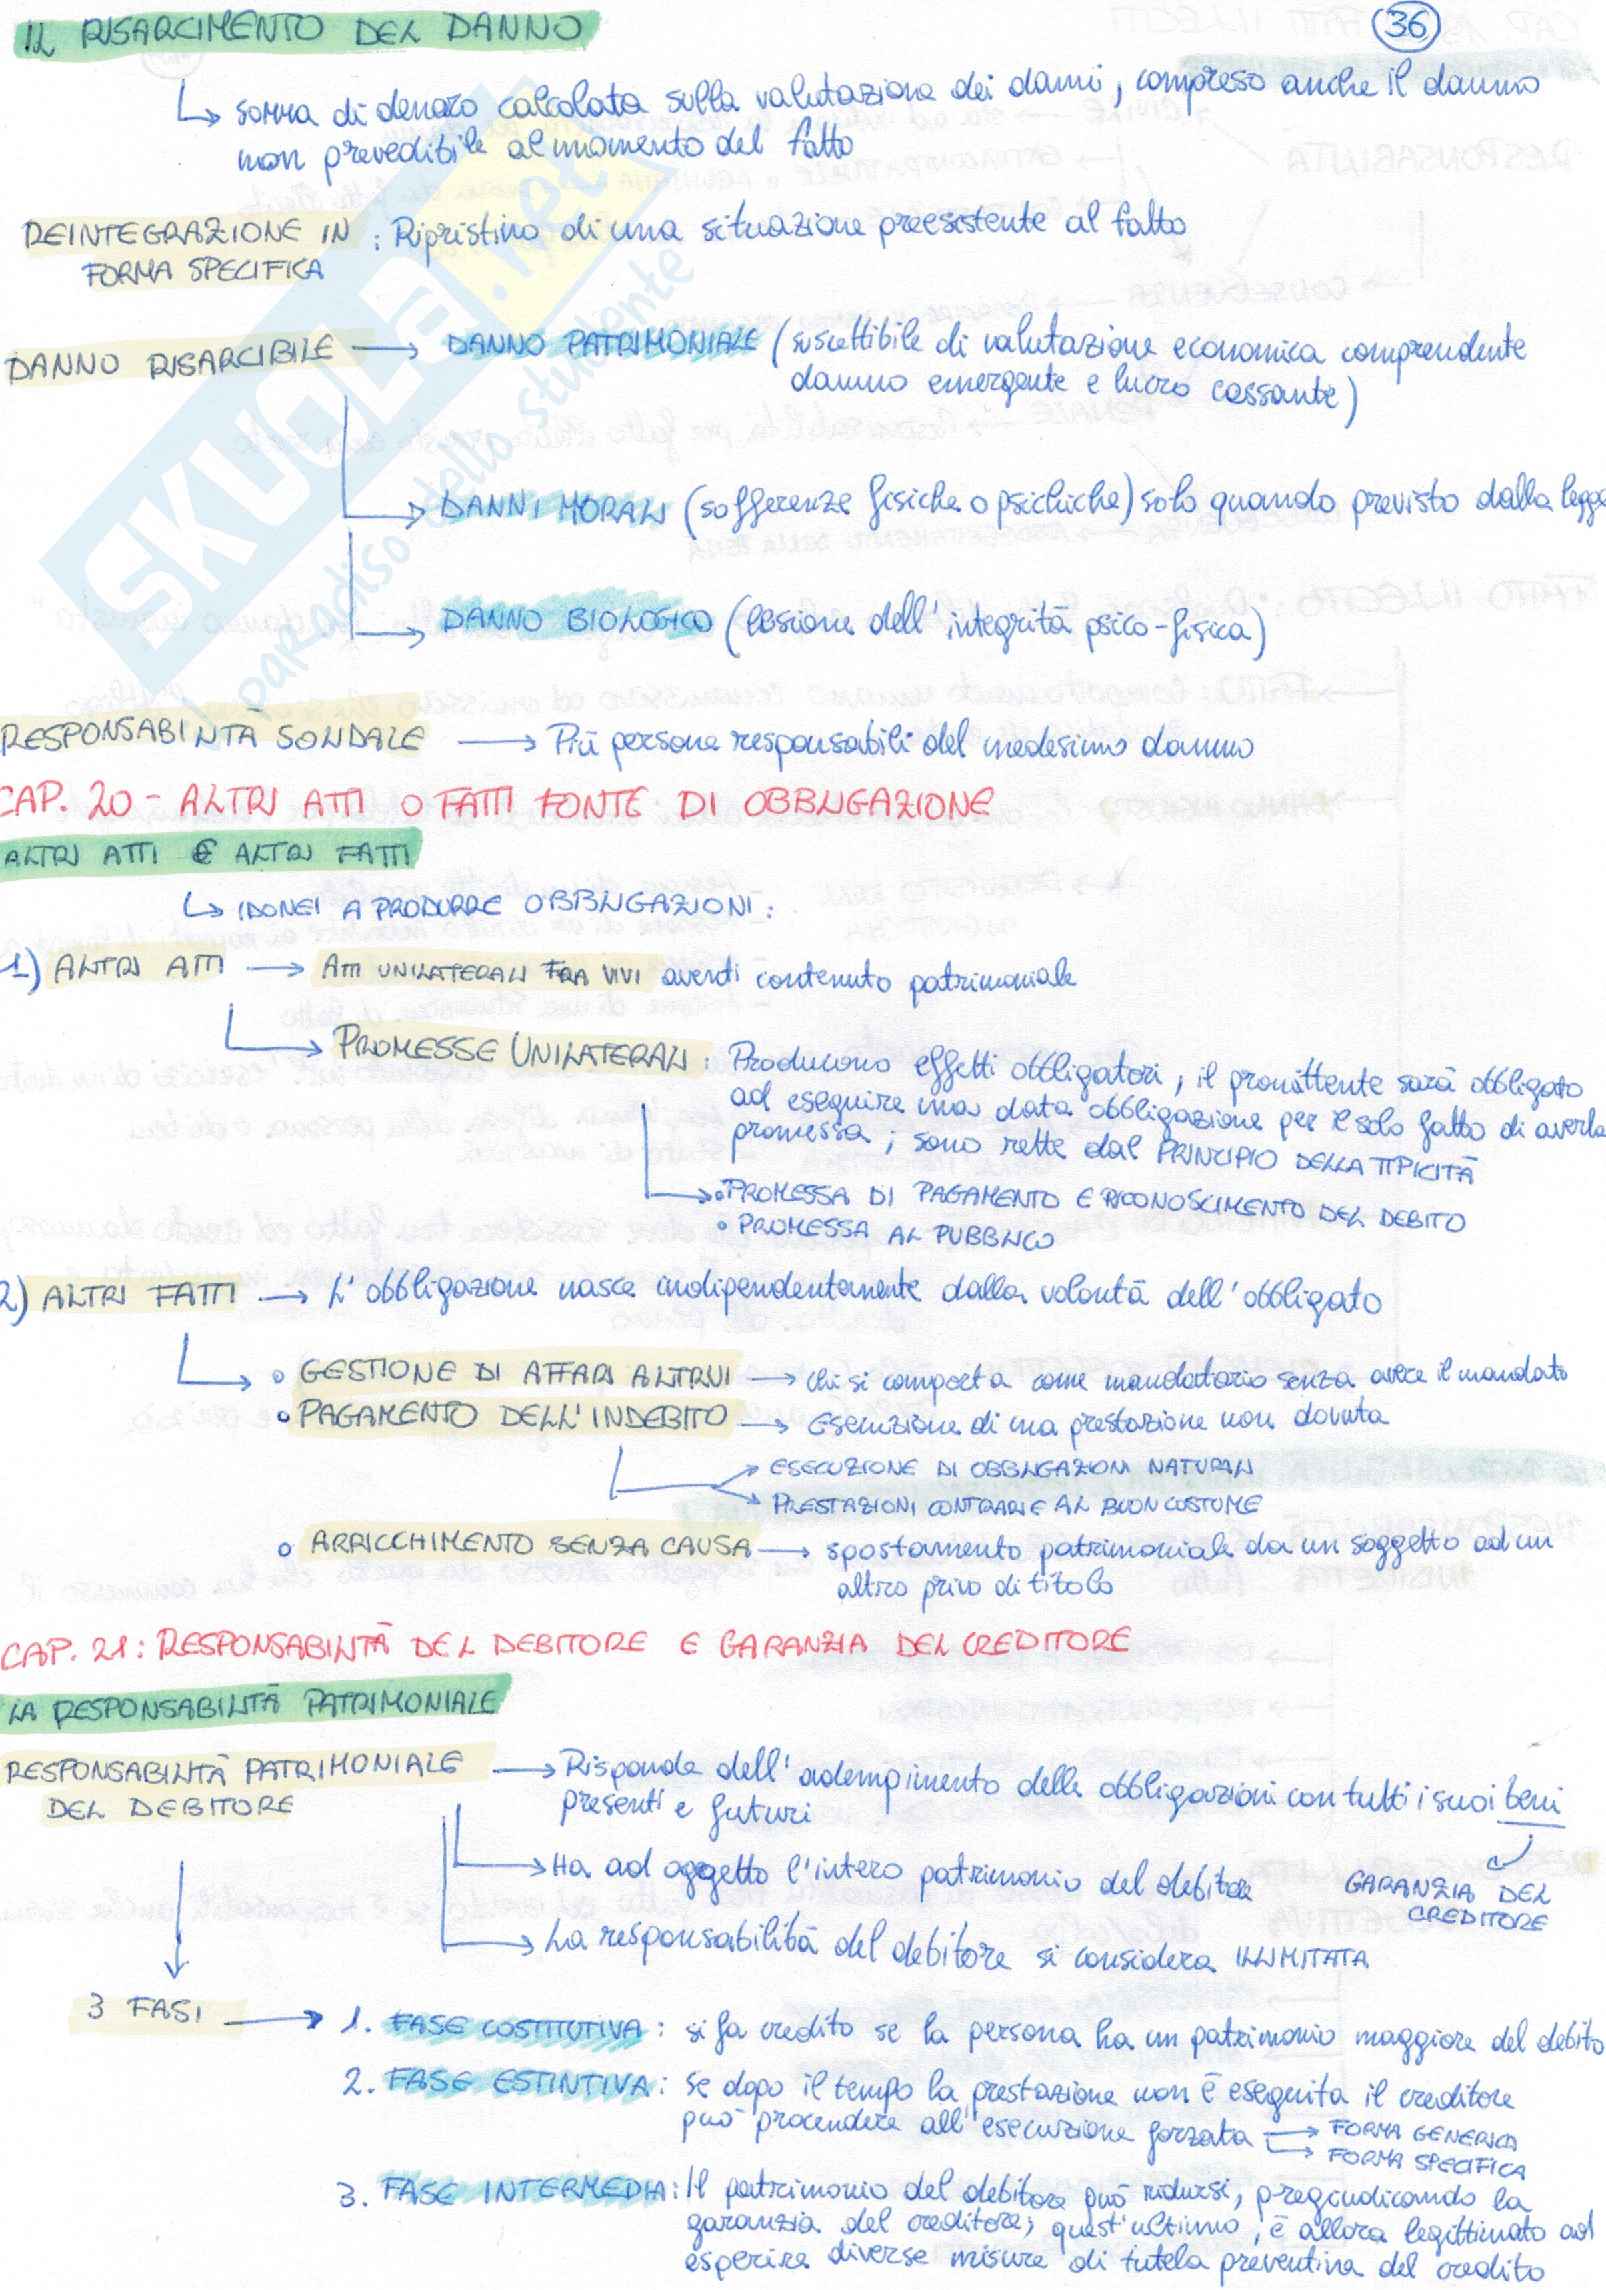 IL RISARCIMENTO DEL DANNO
36
↳ somma di denaro calcolata sulla valutazione dei danni, compreso anche il danno
non prevedibile al momento del fatto
REINTEGRAZIONE IN : Ripristino di una situazione preesistente al fatto
FORMA SPECIFICA
DANNO RISARCIBILE → DANNO PATRIMONIALE (suscettibile di valutazione economica comprendente
danno emergente e lucro cessante)
→ DANNI MORALI (sofferenze fisiche o psichiche) solo quando previsto dalla legge
→ DANNO BIOLOGICO (lesione dell'integrità psico-fisica)
SKUOLA.net
il paradiso dello studente
RESPONSABILITÀ SOLIDALE → Più persone responsabili del medesimo danno
CAP. 20 - ALTRI ATTI O FATTI FONTE DI OBBLIGAZIONE
ALTRI ATTI E ALTRI FATTI
↳ IDONEI A PRODURRE OBBLIGAZIONI:
1) ALTRI ATTI → ATTI UNILATERALI FRA VIVI aventi contenuto patrimoniale
→ PROMESSE UNILATERALI: Producono effetti obbligatori, il promittente sarà obbligato
ad eseguire una data obbligazione per il solo fatto di averla
promessa; sono rette dal PRINCIPIO DELLA TIPICITÀ
→ • PROMESSA DI PAGAMENTO E RICONOSCIMENTO DEL DEBITO
• PROMESSA AL PUBBLICO
2) ALTRI FATTI → L'obbligazione nasce indipendentemente dalla volontà dell'obbligato
→ • GESTIONE DI AFFARI ALTRUI → chi si comporta come mandatario senza avere il mandato
• PAGAMENTO DELL'INDEBITO → Esecuzione di una prestazione non dovuta
→ ESECUZIONE DI OBBLIGAZIONI NATURALI
→ PRESTAZIONI CONTRARIE AL BUON COSTUME
• ARRICCHIMENTO SENZA CAUSA → spostamento patrimoniale da un soggetto ad un
altro privo di titolo
CAP. 21: RESPONSABILITÀ DEL DEBITORE E GARANZIA DEL CREDITORE
LA RESPONSABILITÀ PATRIMONIALE
RESPONSABILITÀ PATRIMONIALE → Risponde dell'adempimento delle obbligazioni con tutti i suoi beni
DEL DEBITORE presenti e futuri
→ Ha ad oggetto l'intero patrimonio del debitore GARANZIA DEL
CREDITORE
→ La responsabilità del debitore si considera ILLIMITATA
3 FASI → 1. FASE COSTITUTIVA: si fa credito se la persona ha un patrimonio maggiore del debito
2. FASE ESTINTIVA: se dopo il tempo la prestazione non è eseguita il creditore
può procendere all'esecuzione forzata → FORMA GENERICA
→ FORMA SPECIFICA
3. FASE INTERMEDIA: Il patrimonio del debitore può ridursi, pregiudicando la
garanzia del creditore; quest'ultimo, è allora legittimato ad
esperire diverse misure di tutela preventiva del credito